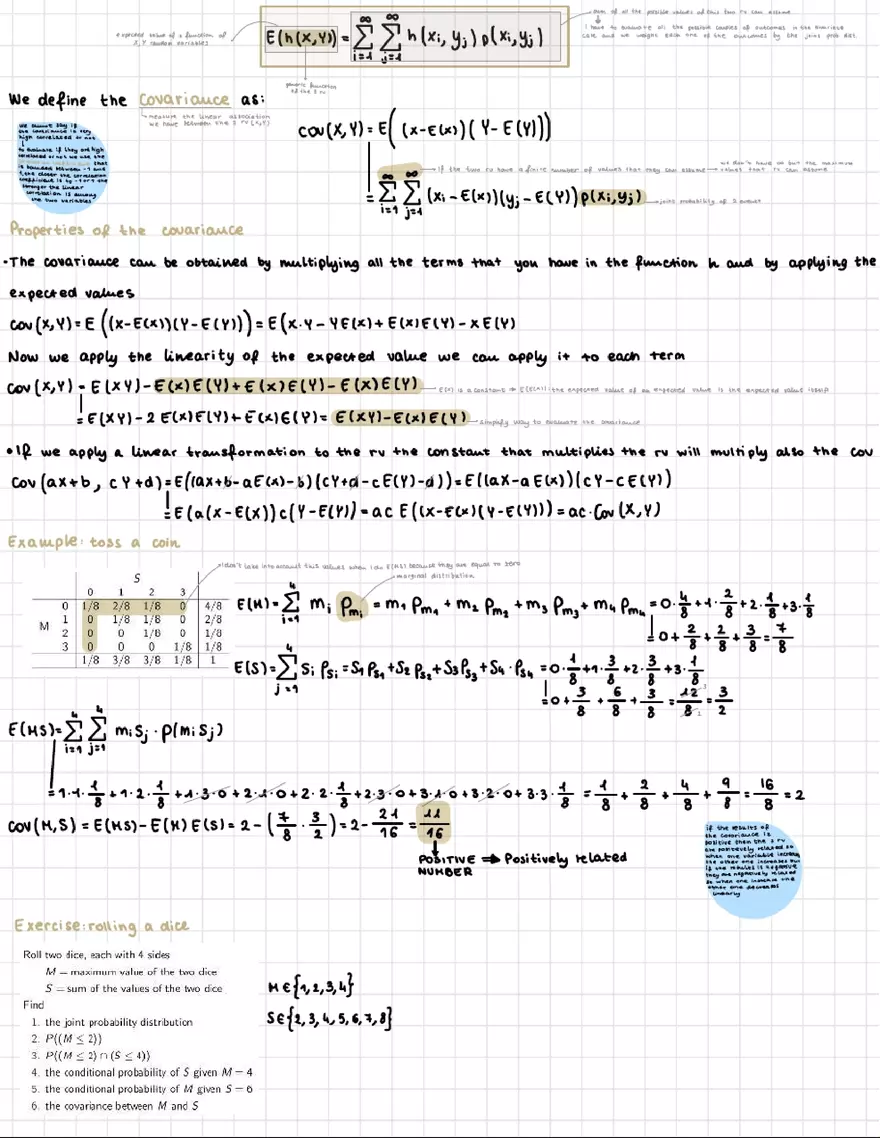 sum of all the possible values of this two rv can assume
expected value of a function of X,Y random variables
E(h(X,Y)) = ∞∑i=1 ∞∑j=1 h(xi, yj) p(xi, yj)
I have to evaluate all the possible couples of outcomes in the
case and we weight each one of the outcomes by the joint prob dist.
generic function of the 2 rv
We define the Covariance as:
measure the linear association
we have between the 2 rv (X,Y)
COV(X,Y) = E((X-E(X))(Y-E(Y)))
we cannot say if
the covariance is very
high correlated or not
to evaluate if they are high
correlated or not we use the
that
is bounded between -1 and
1, the closer the correlation
coefficient is to -1 or 1 the
stronger the linear
correlation is among
the two variables
if the two rv have a finite number of values that they can assume
we don't have but the maximum
values that rv can assume
= ∑i=1 ∑j=1 (xi-E(X))(yj-E(Y)) p(xi,yj)
joint probability of 2 event
Properties of the covariance
•The covariance can be obtained by multiplying all the terms that you have in the function h and by applying the
expected values
COV(X,Y) = E((X-E(X))(Y-E(Y))) = E(X·Y - YE(X) + E(X)E(Y) - XE(Y)
Now we apply the linearity of the expected value we can apply it to each term
COV(X,Y) = E(XY) - E(X)E(Y) + E(X)E(Y) - E(X)E(Y)
E(X) is a constant ⇒ E(E(X)): the expected value of an expected value is the expected value itself
= E(XY) - 2E(X)E(Y) + E(X)E(Y) = E(XY) - E(X)E(Y)
simplify way to evaluate the covariance
•If we apply a linear transformation to the rv the constant that multiplies the rv will multiply also the cov
COV(aX+b, cY+d) = E((aX+b-aE(X)-b)(cY+d-cE(Y)-d)) = E((aX-aE(X))(cY-cE(Y))
= E(a(X-E(X))c(Y-E(Y)) = ac E((X-E(X)(Y-E(Y))) = ac·Cov(X,Y)
Example: toss a coin
I don't take into account this values when I do E(MS) because they are equal to zero
marginal distribution
S
0 1 2 3
0 1/8 2/8 1/8 0 4/8
M 1 0 1/8 1/8 0 2/8
2 0 0 1/8 0 1/8
3 0 0 0 1/8 1/8
1/8 3/8 3/8 1/8 1
E(M) = 4∑i=1 mi Pmi = m1 Pm1 + m2 Pm2 + m3 Pm3 + m4 Pm4 = 0·4/8 + 1·2/8 + 2·1/8 + 3·1/8
= 0 + 2/8 + 2/8 + 3/8 = 7/8
E(S) = 4∑j=1 Si PSi = S1 PS1 + S2 PS2 + S3 PS3 + S4·PS4 = 0·1/8 + 1·3/8 + 2·3/8 + 3·1/8
= 0 + 3/8 + 6/8 + 3/8 = 12/8 = 3/2
E(MS) = 4∑i=1 4∑j=1 miSj·P(miSj)
= 1·1·1/8 + 1·2·1/8 + 1·3·0 + 2·1·0 + 2·2·1/8 + 2·3·0 + 3·1·0 + 3·2·0 + 3·3·1/8 = 1/8 + 2/8 + 4/8 + 9/8 = 16/8 = 2
COV(M,S) = E(MS) - E(M)E(S) = 2 - (7/8 · 3/2) = 2 - 21/16 = 11/16
POSITIVE NUMBER ⇒ Positively related
if the results of
the covariance is
positive then the 2 rv
are positevely related so
when one variable increase
the other one increases but
if the results is negative
they are negatively related
so when one increase the
other one decreases
linearly
Exercise: rolling a dice
Roll two dice, each with 4 sides
M = maximum value of the two dice
S = sum of the values of the two dice
Find
1. the joint probability distribution
2. P((M ≤ 2))
3. P((M ≤ 2) ∩ (S ≤ 4))
4. the conditional probability of S given M = 4
5. the conditional probability of M given S = 6
6. the covariance between M and S
M∈{1,2,3,4}
S∈{2,3,4,5,6,7,8}